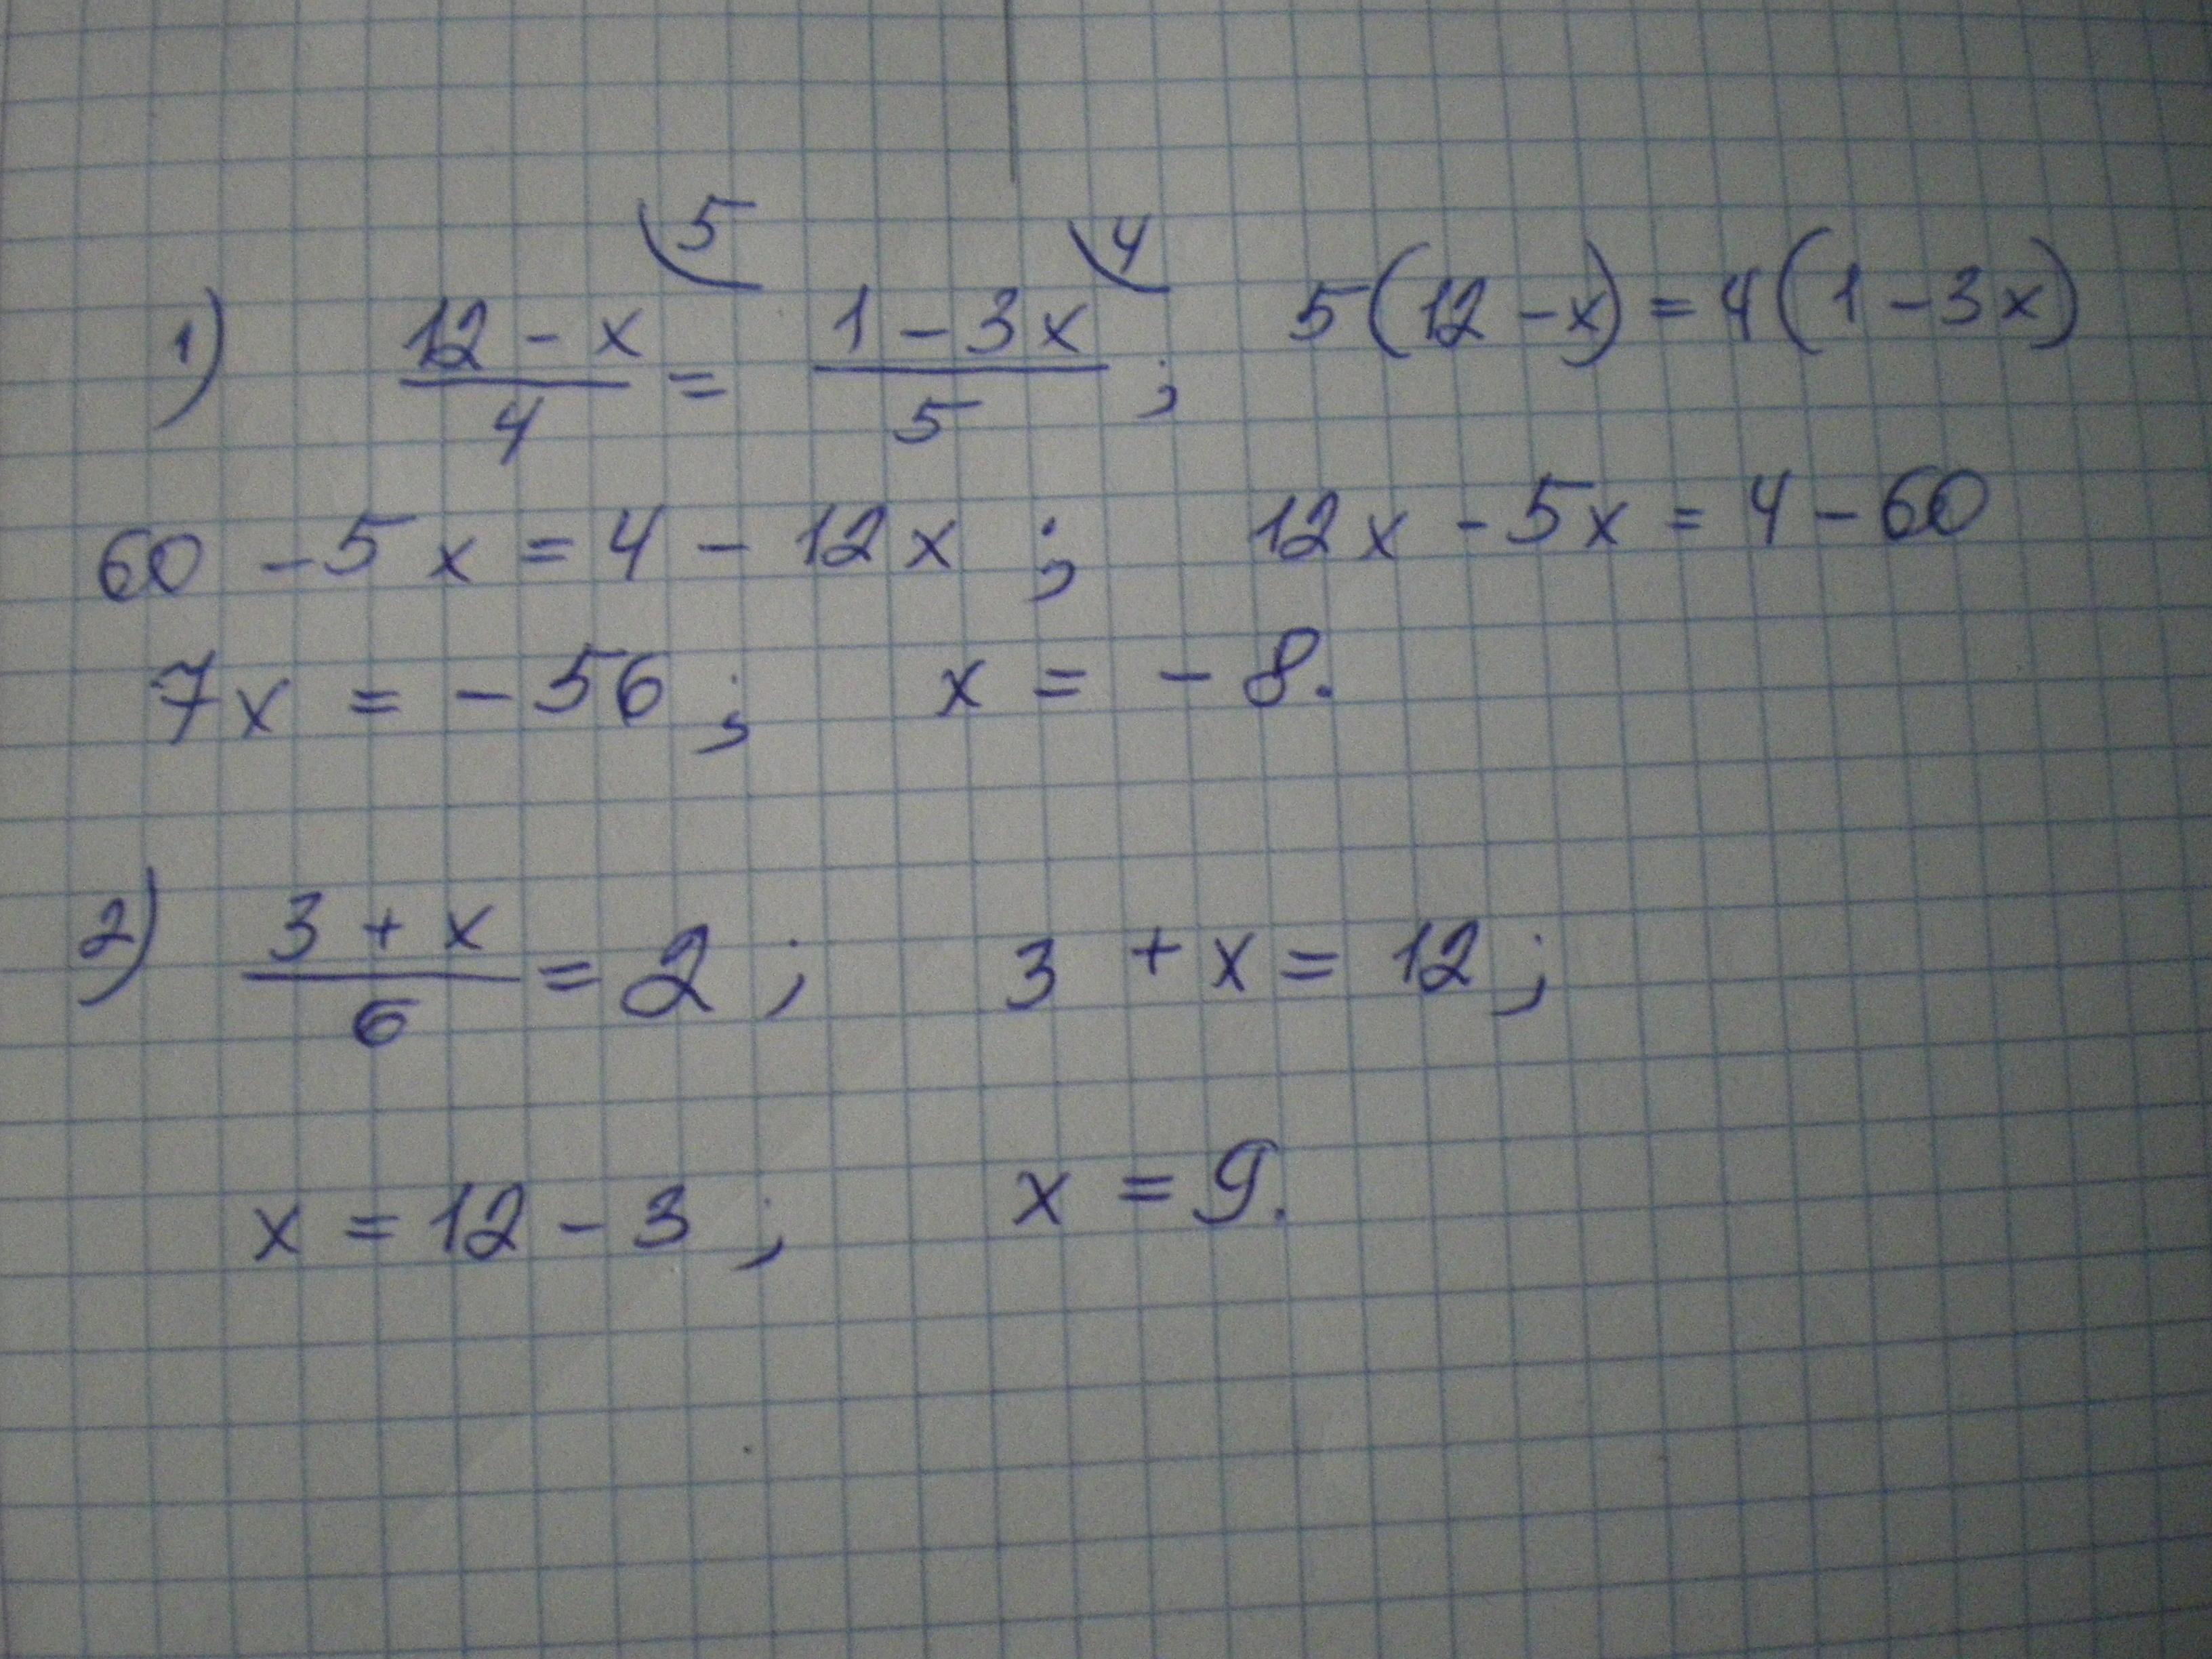 1) (12 - x)/4 \5 = (1 - 3x)/5 \4 ; 5(12 - x) = 4(1 - 3x)
60 - 5x = 4 - 12x ; 12x - 5x = 4 - 60
7x = - 56 ; x = - 8.
2) (3 + x)/6 = 2 ; 3 + x = 12 ;
x = 12 - 3 ; x = 9.